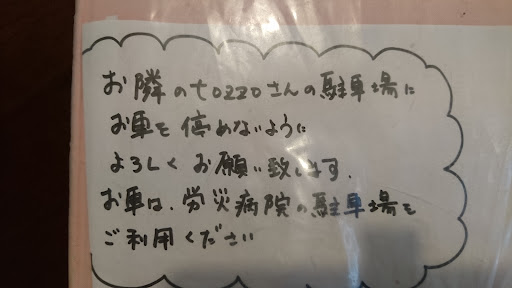 お隣のtozzoさんの駐車場に
お車を停めないように
よろしくお願い致します.
お車は、労災病院の駐車場を
ご利用ください